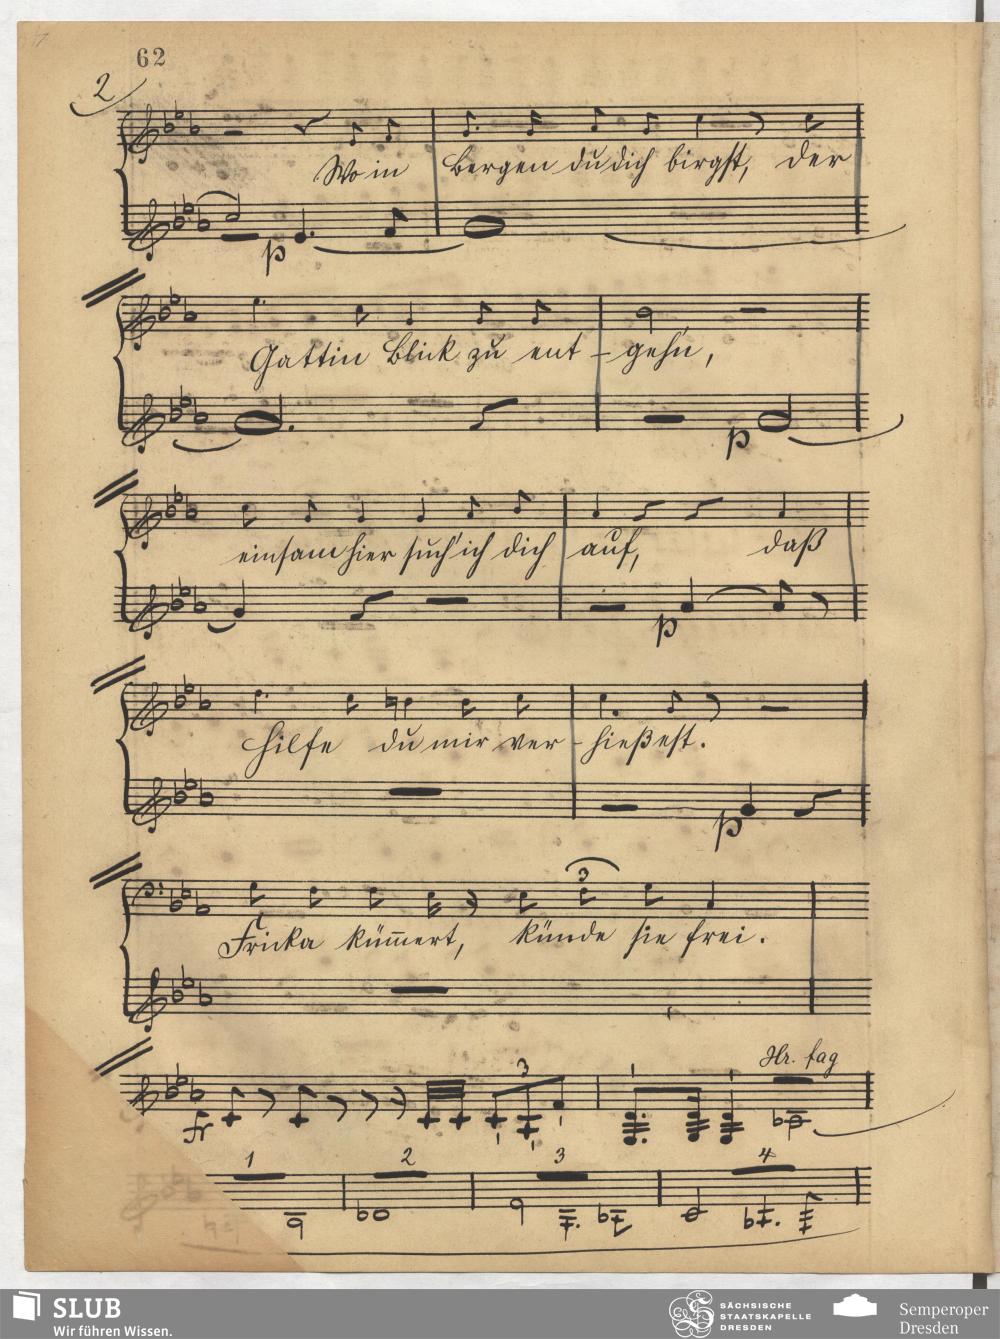 62
2
Wo in Bergen du dich birgst, der
p
Gattin Blick zu ent-gehn,
p
einsam hier such' ich dich auf, daß
p
Hilfe du mir ver-hießest.
p
3
Fricka kümmert, künde sie frei.
Hr. fag
3
1 2 3 4
SLUB
Wir führen Wissen.
SÄCHSISCHE
STAATSKAPELLE
DRESDEN
Semperoper
Dresden